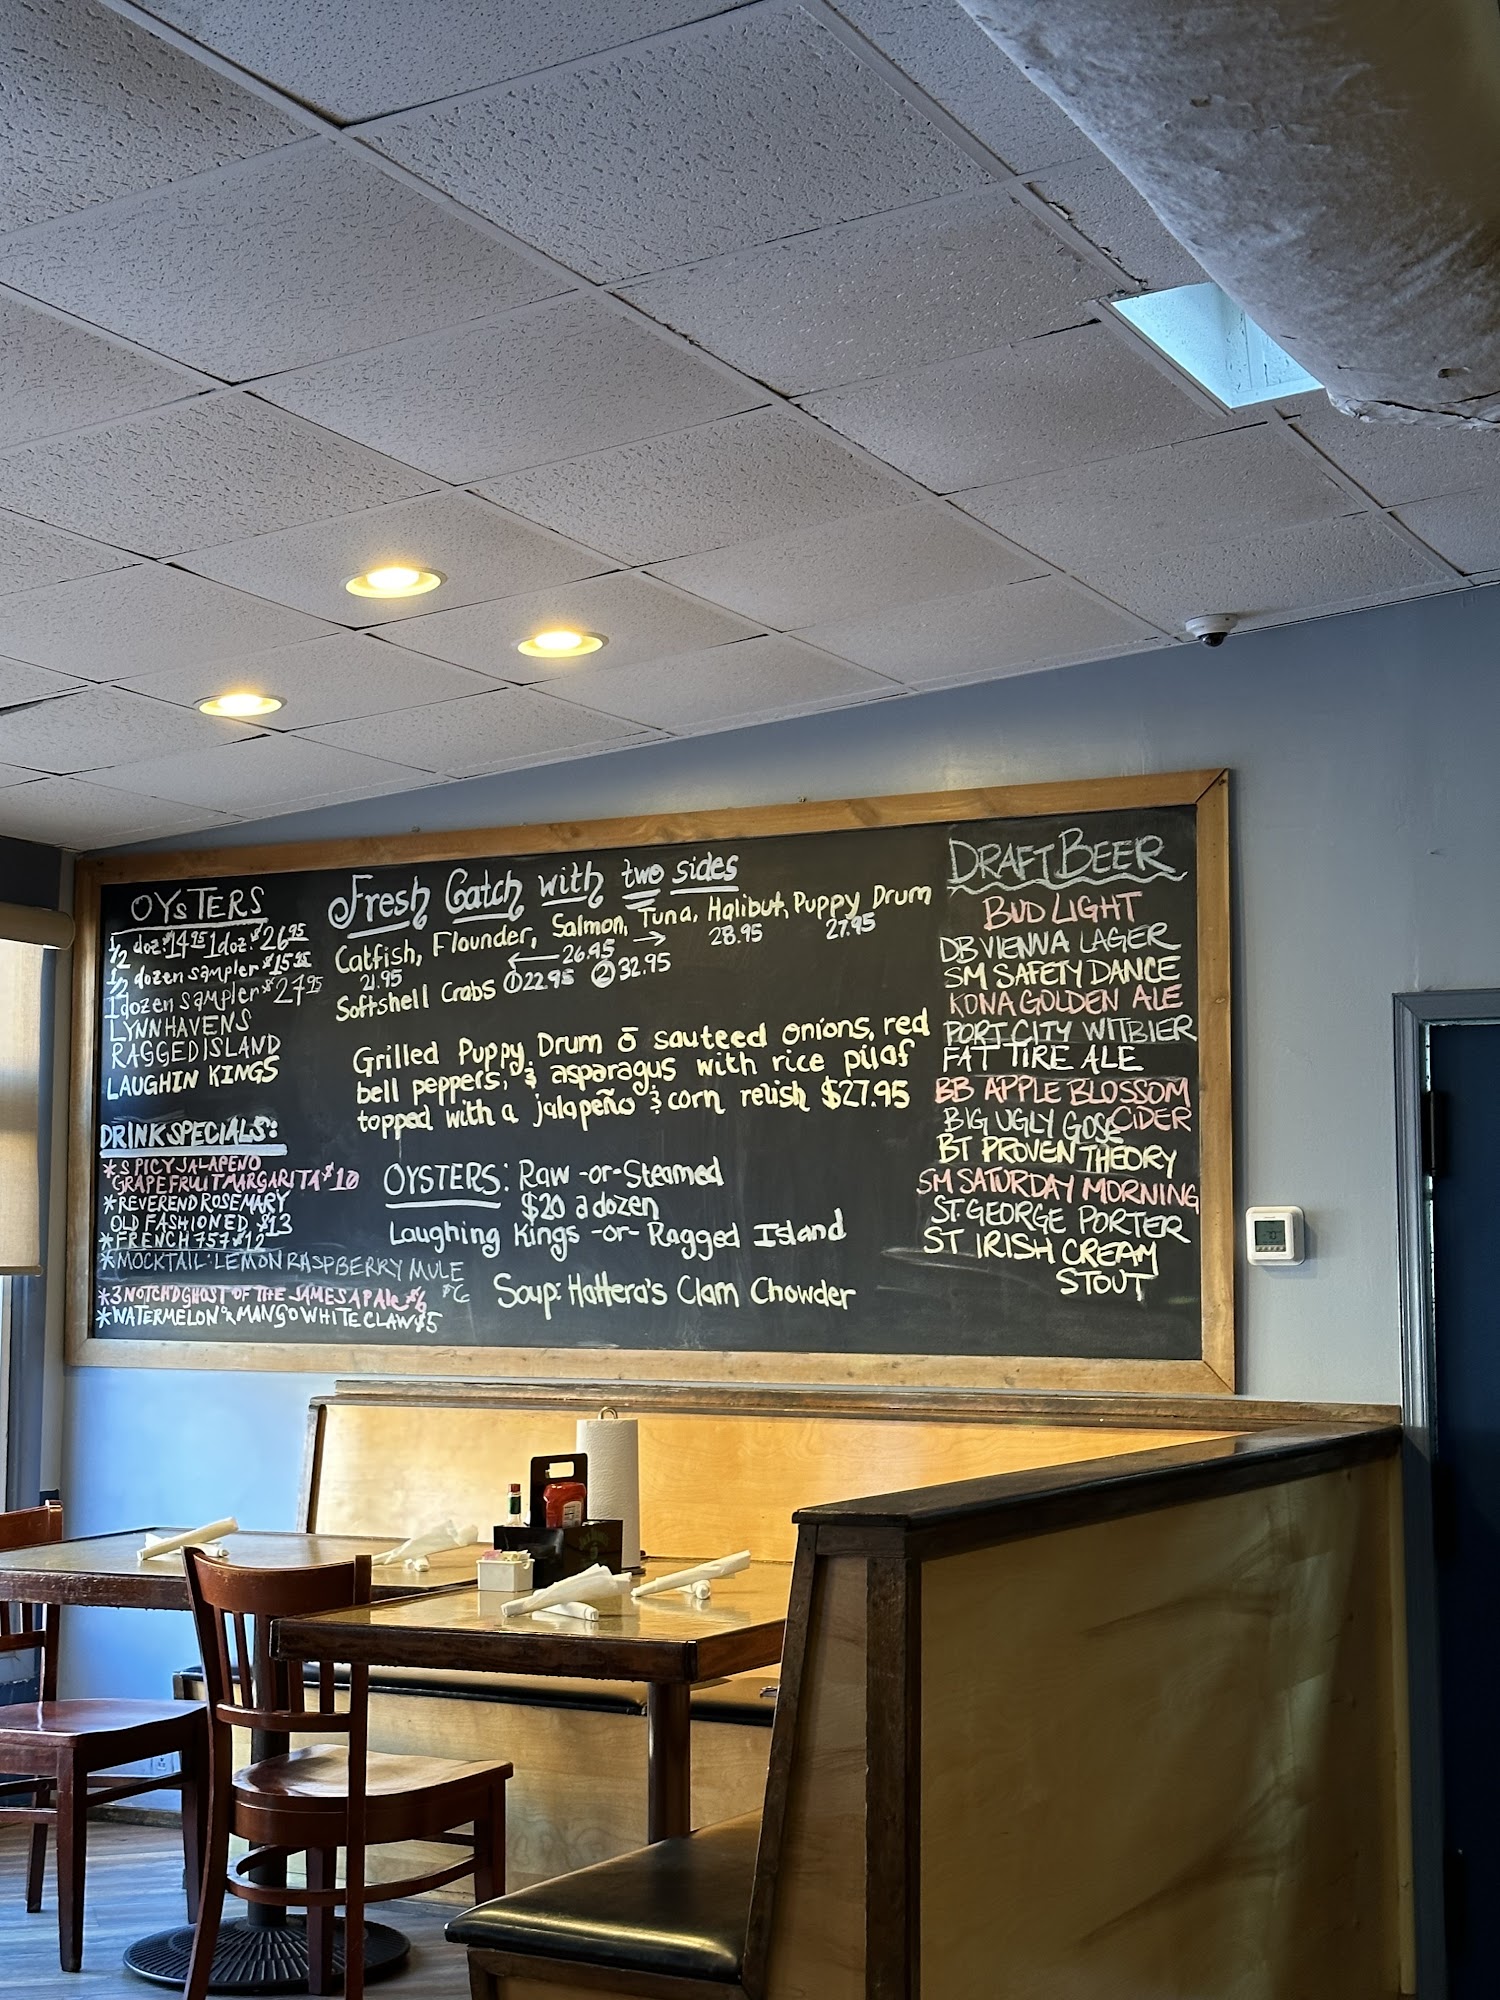 OYSTERS
1/2 doz. $14.95 1 doz. $26.95
1/2 dozen sampler $15.95
1 dozen sampler $27.95
LYNNHAVENS
RAGGED ISLAND
LAUGHIN KINGS
DRINK SPECIALS:
*SPICY JALAPEÑO
GRAPEFRUIT MARGARITA $10
*REVEREND ROSEMARY
OLD FASHIONED $13
*FRENCH 757 $12
*MOCKTAIL: LEMON RASPBERRY MULE
$6
*3 NOTCH'D GHOST OF THE JAMES APALE $6
*WATERMELON & MANGO WHITE CLAW $5
Fresh Catch with two sides
Catfish, Flounder, Salmon, Tuna, Halibut, Puppy Drum
21.95 ← 26.95 → 28.95 27.95
Softshell Crabs ① 22.95 ② 32.95
Grilled Puppy Drum ō sauteed onions, red
bell peppers, & asparagus with rice pilaf
topped with a jalapeño & corn relish $27.95
OYSTERS: Raw -or- Steamed
$20 a dozen
Laughing Kings -or- Ragged Island
Soup: Hattera's Clam Chowder
DRAFT BEER
BUD LIGHT
DB VIENNA LAGER
SM SAFETY DANCE
KONA GOLDEN ALE
PORT CITY WITBIER
FAT TIRE ALE
BB APPLE BLOSSOM
CIDER
BIG UGLY GOSE
BT PROVEN THEORY
SM SATURDAY MORNING
ST. GEORGE PORTER
ST IRISH CREAM
STOUT